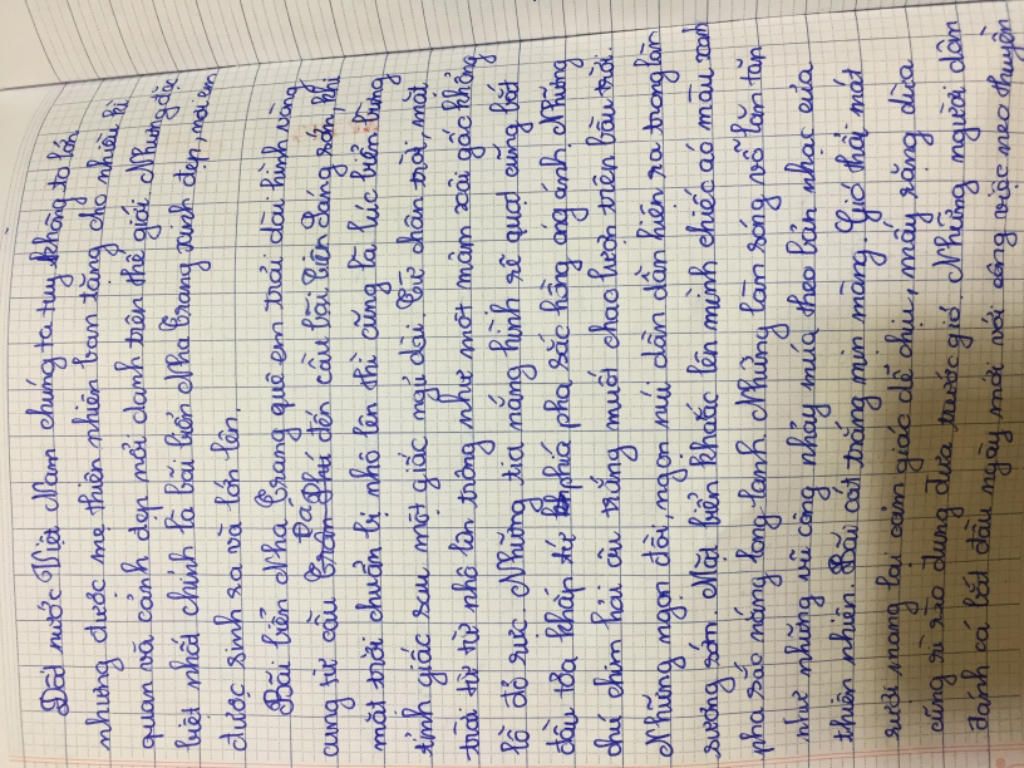 Đất nước Việt Nam chúng ta tuy không to lớn
nhưng được mẹ thiên nhiên ban tặng cho nhiều kì
quan và cảnh đẹp nổi danh trên thế giới. Nhưng đặc
biệt nhất chính là bãi biển Nha Trang xinh đẹp, nơi em
được sinh ra và lớn lên.
Bãi biển Nha Trang quê em trải dài hình vòng
cung từ cầu Trần Phú đến cầu Bãi Tiên. Sáng sớm, khi
mặt trời chuẩn bị nhô lên thì cũng là lúc biển bừng
tỉnh giấc sau một giấc ngủ dài. Từ chân trời, mặt
trời từ từ nhô lên trông như một mâm xôi gấc khổng
lồ đỏ rực. Những tia nắng hình rẽ quạt cũng bắt
đầu tỏa khắp tứ phía pha sắc hồng óng ánh. Những
chú chim hải âu trắng muốt chao lượn trên bầu trời.
Những ngọn đồi, ngọn núi dần dần hiện ra trong làn
sương sớm. Mặt biển khoác lên mình chiếc áo màu xanh
pha sắc nắng long lanh. Những làn sóng vỗ lăn tăn
như những vũ công nhảy múa theo bản nhạc của
thiên nhiên. Bãi cát trắng mịn màng. Gió thổi mát
rượi mang lại cảm giác dễ chịu, mấy rặng dừa
cũng rì rào đung đưa trước gió. Những người dân
đánh cá bắt đầu ngày mới với công việc neo thuyền